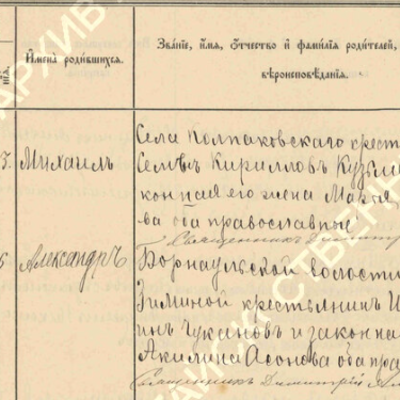 Имена родившихся.
Званіе, имя, отчество и фамилія родителей,
вѣроисповѣданія.
Михаилъ
Села Колпаковскаго крест
Семенъ Кирилловъ Кузьми
конная его жена Марѳа
ва оба православные
Священник Димитр
Александръ
Барнаульской волости
Зиминой крестьянинъ И
инъ Чукановъ и законна
Акилина Асонова оба пра
Священникъ Димитрій